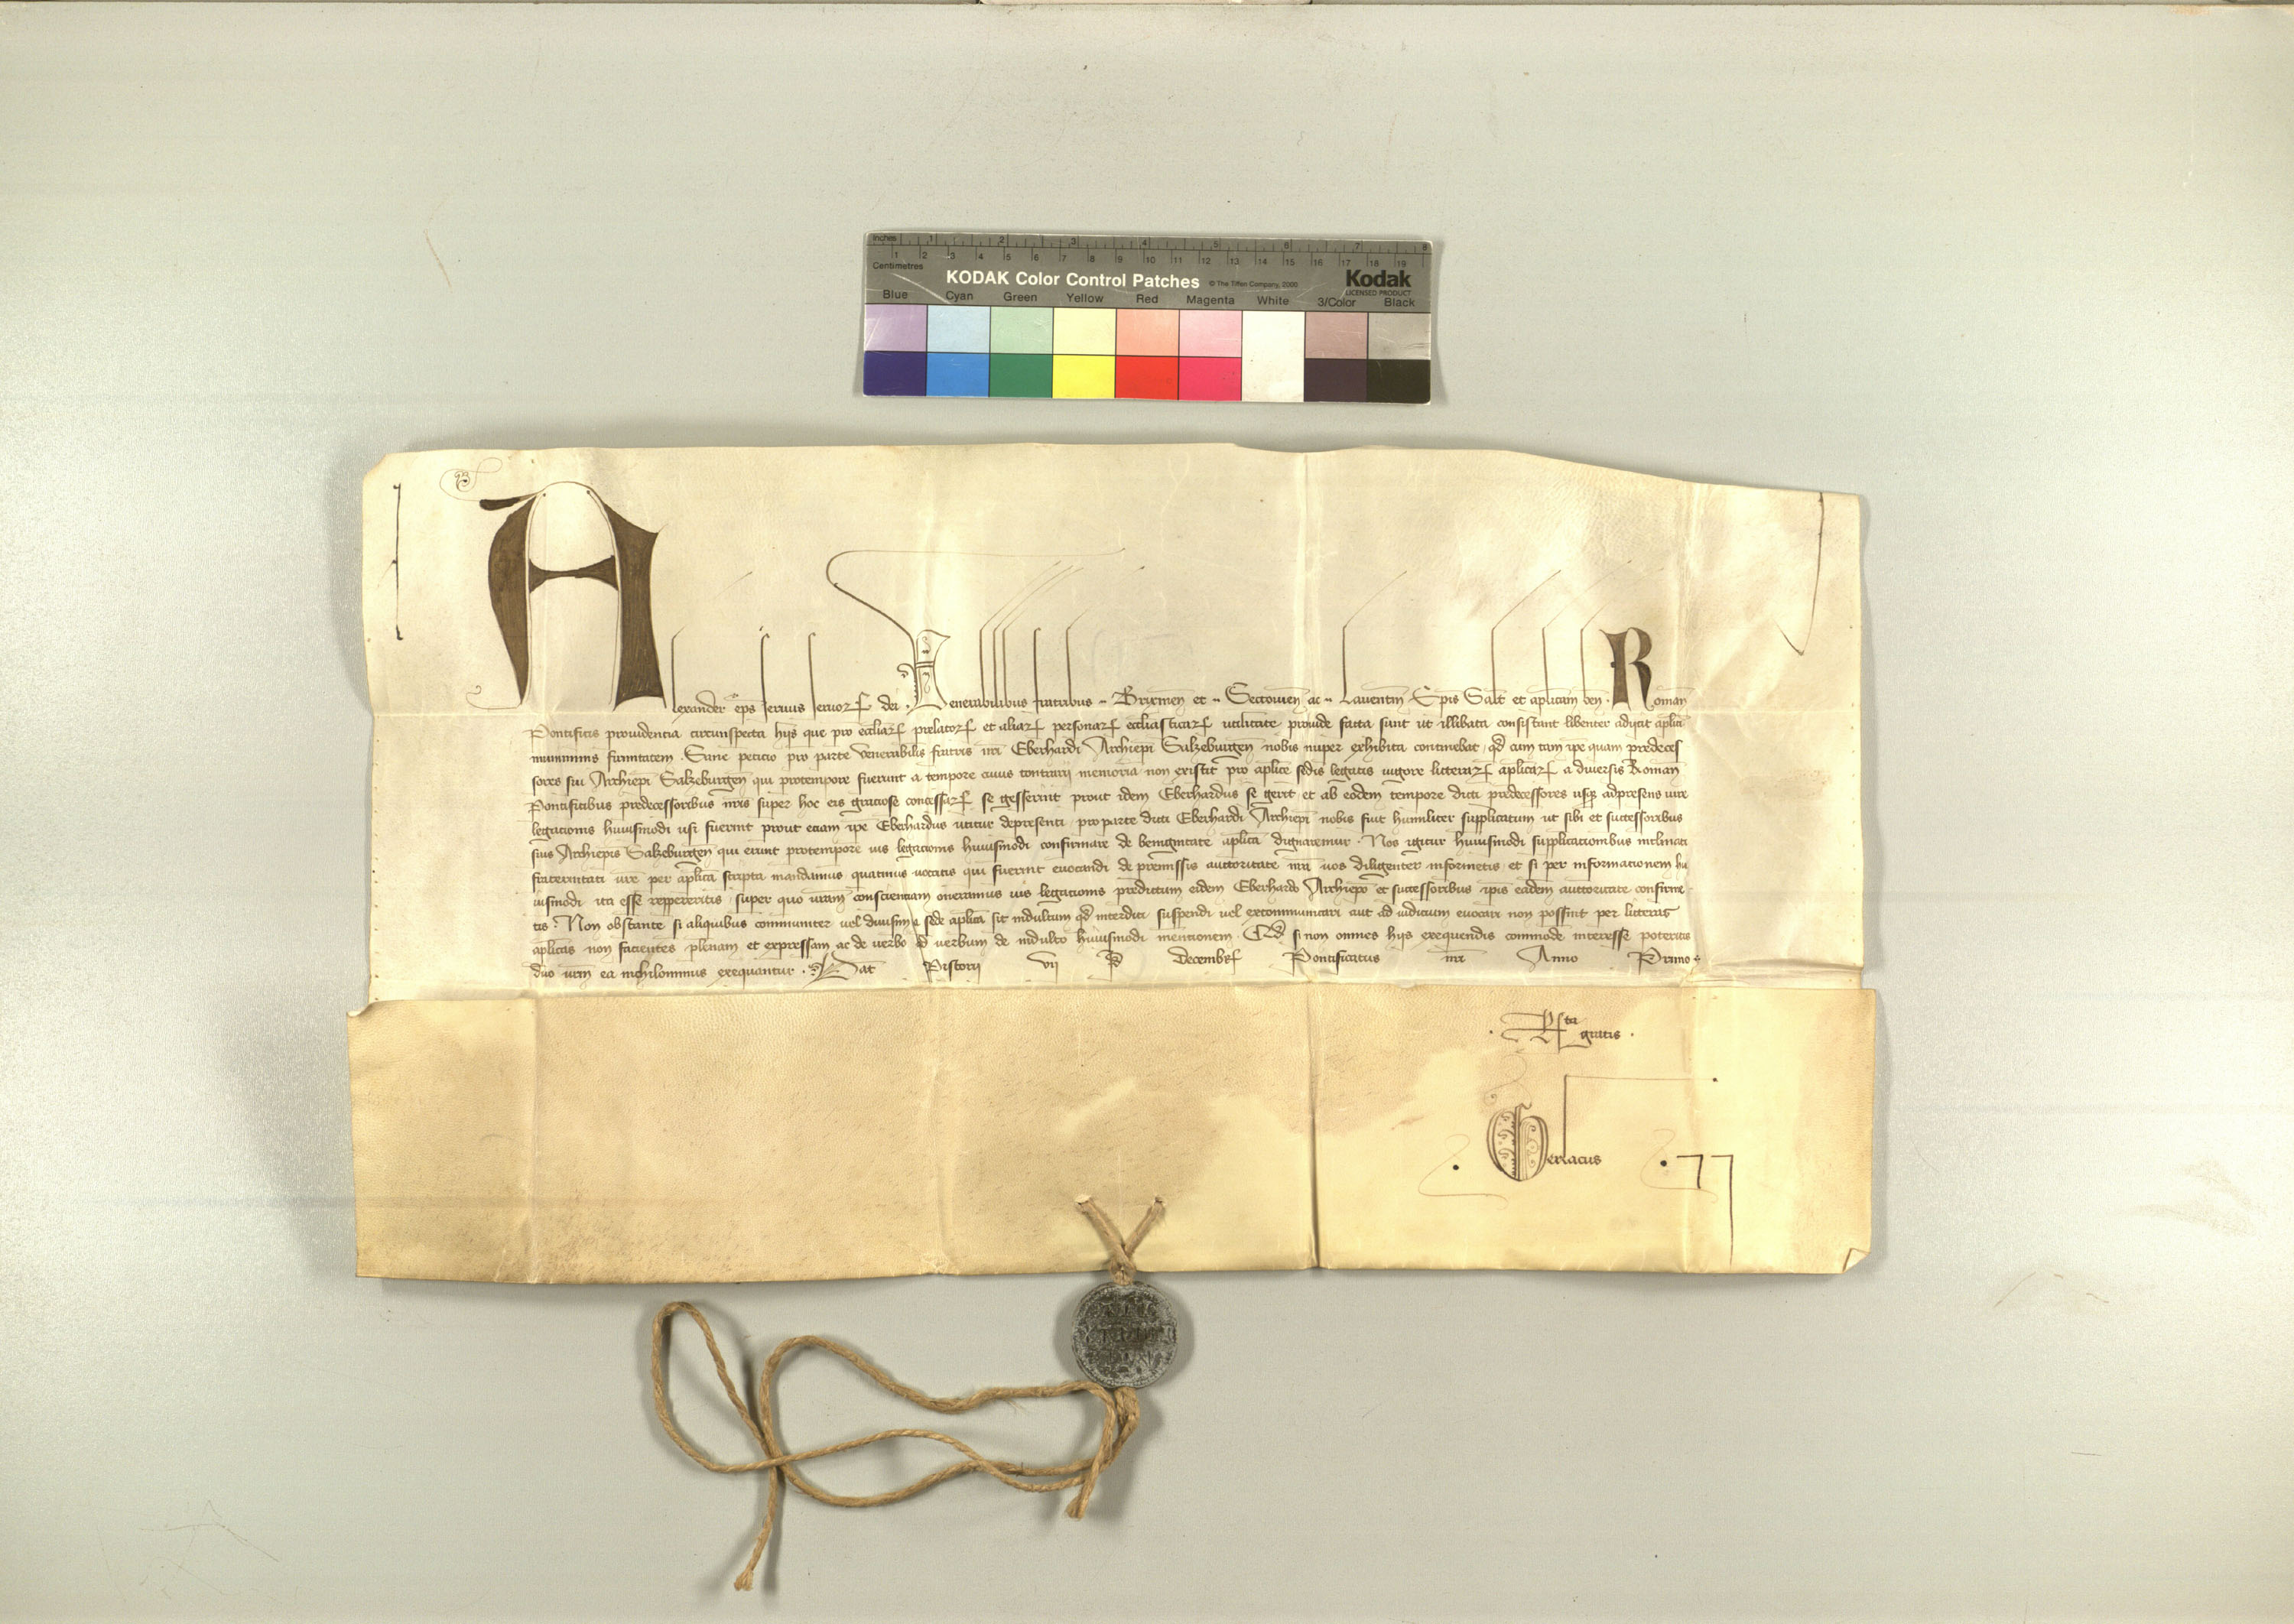 Inches 1 2 3 4 5 6 7 8
Centimetres 1 2 3 4 5 6 7 8 9 10 11 12 13 14 15 16 17 18 19
KODAK Color Control Patches © The Tiffen Company, 2000 Kodak
LICENSED PRODUCT
Blue Cyan Green Yellow Red Magenta White 3/Color Black
Alexander ep̄s servus servoꝝ dei Venerabilibus fratribus ·· Brixineñ et ·· Secovieñ ac ·· Laventiñ Ep̄is Salt̄ et ap̄licam beñ · Romani
Pontificis providentia circunspecta hijs que pro eccl̄iaꝝ prelatoꝝ et aliaꝝ personaꝝ eccl̄iasticaꝝ utilitate provide facta sunt ut illibata consistant libenter adijcit ap̄lici
muniminis firmitatem · Sane peticio pro parte venerabilis fratris nr̄i Eberhardi Archiep̄i Salzeburgeñ nobis nuper exhibita continebat qd̄ cum tam ip̄e quam predeces
sores sui Archiep̄i Salzeburgeñ qui protempore fuerunt a tempore cuius contrarii memoria non existit pro ap̄lice sedis legatis vigore litteraꝝ ap̄licaꝝ a diversis Romañ
Pontificibus predecessoribus nr̄is super hoc eis graciose concessaꝝ se gesserint prout idem Eberhardus se gerit et ab eodem tempore dicti predecessores usqꝫ adpresens iure
legacionis huiusmodi usi fuerint prout eciam ip̄e Eberhardus utitur depresenti pro parte dicti Eberhardi Archiep̄i nobis fuit humiliter supplicatum ut sibi et successoribus
suis Archiep̄is Salzeburgeñ qui erunt protempore ius legacionis huiusmodi confirmare de benignitate ap̄lica dignaremur · Nos igitur huiusmodi supplicacionibus inclinati
fraternitati vr̄e per ap̄lica scripta mandamus quatinus vocatis qui fuerint evocandi de premissis auctoritate nr̄a vos diligenter informetis et si per informacionem hu
iusmodi ita esse reppereritis super quo vr̄am conscienciam oneramus ius legacionis predictum eidem Eberhardo Archiep̄o et successoribus ip̄is eadem auctoritate confirme
tis · Non obstante si aliquibus communiter vel divisim a sede ap̄lica sit indultum qd̄ interdici suspendi vel excommunicari aut ad iudicium evocari non possint per litteras
ap̄licas non facientes plenam et expressam ac de verbo ad verbum de indulto huiusmodi mentionem · Qd̄ si non omnes hijs exequendis commode interesse poteritis
duo vr̄m ea nichilominus exequantur · Dat̄ Pistorii vii Id̄ Decembꝝ Pontificatus nr̄i Anno Primo
Rta gratis
Gerlacus